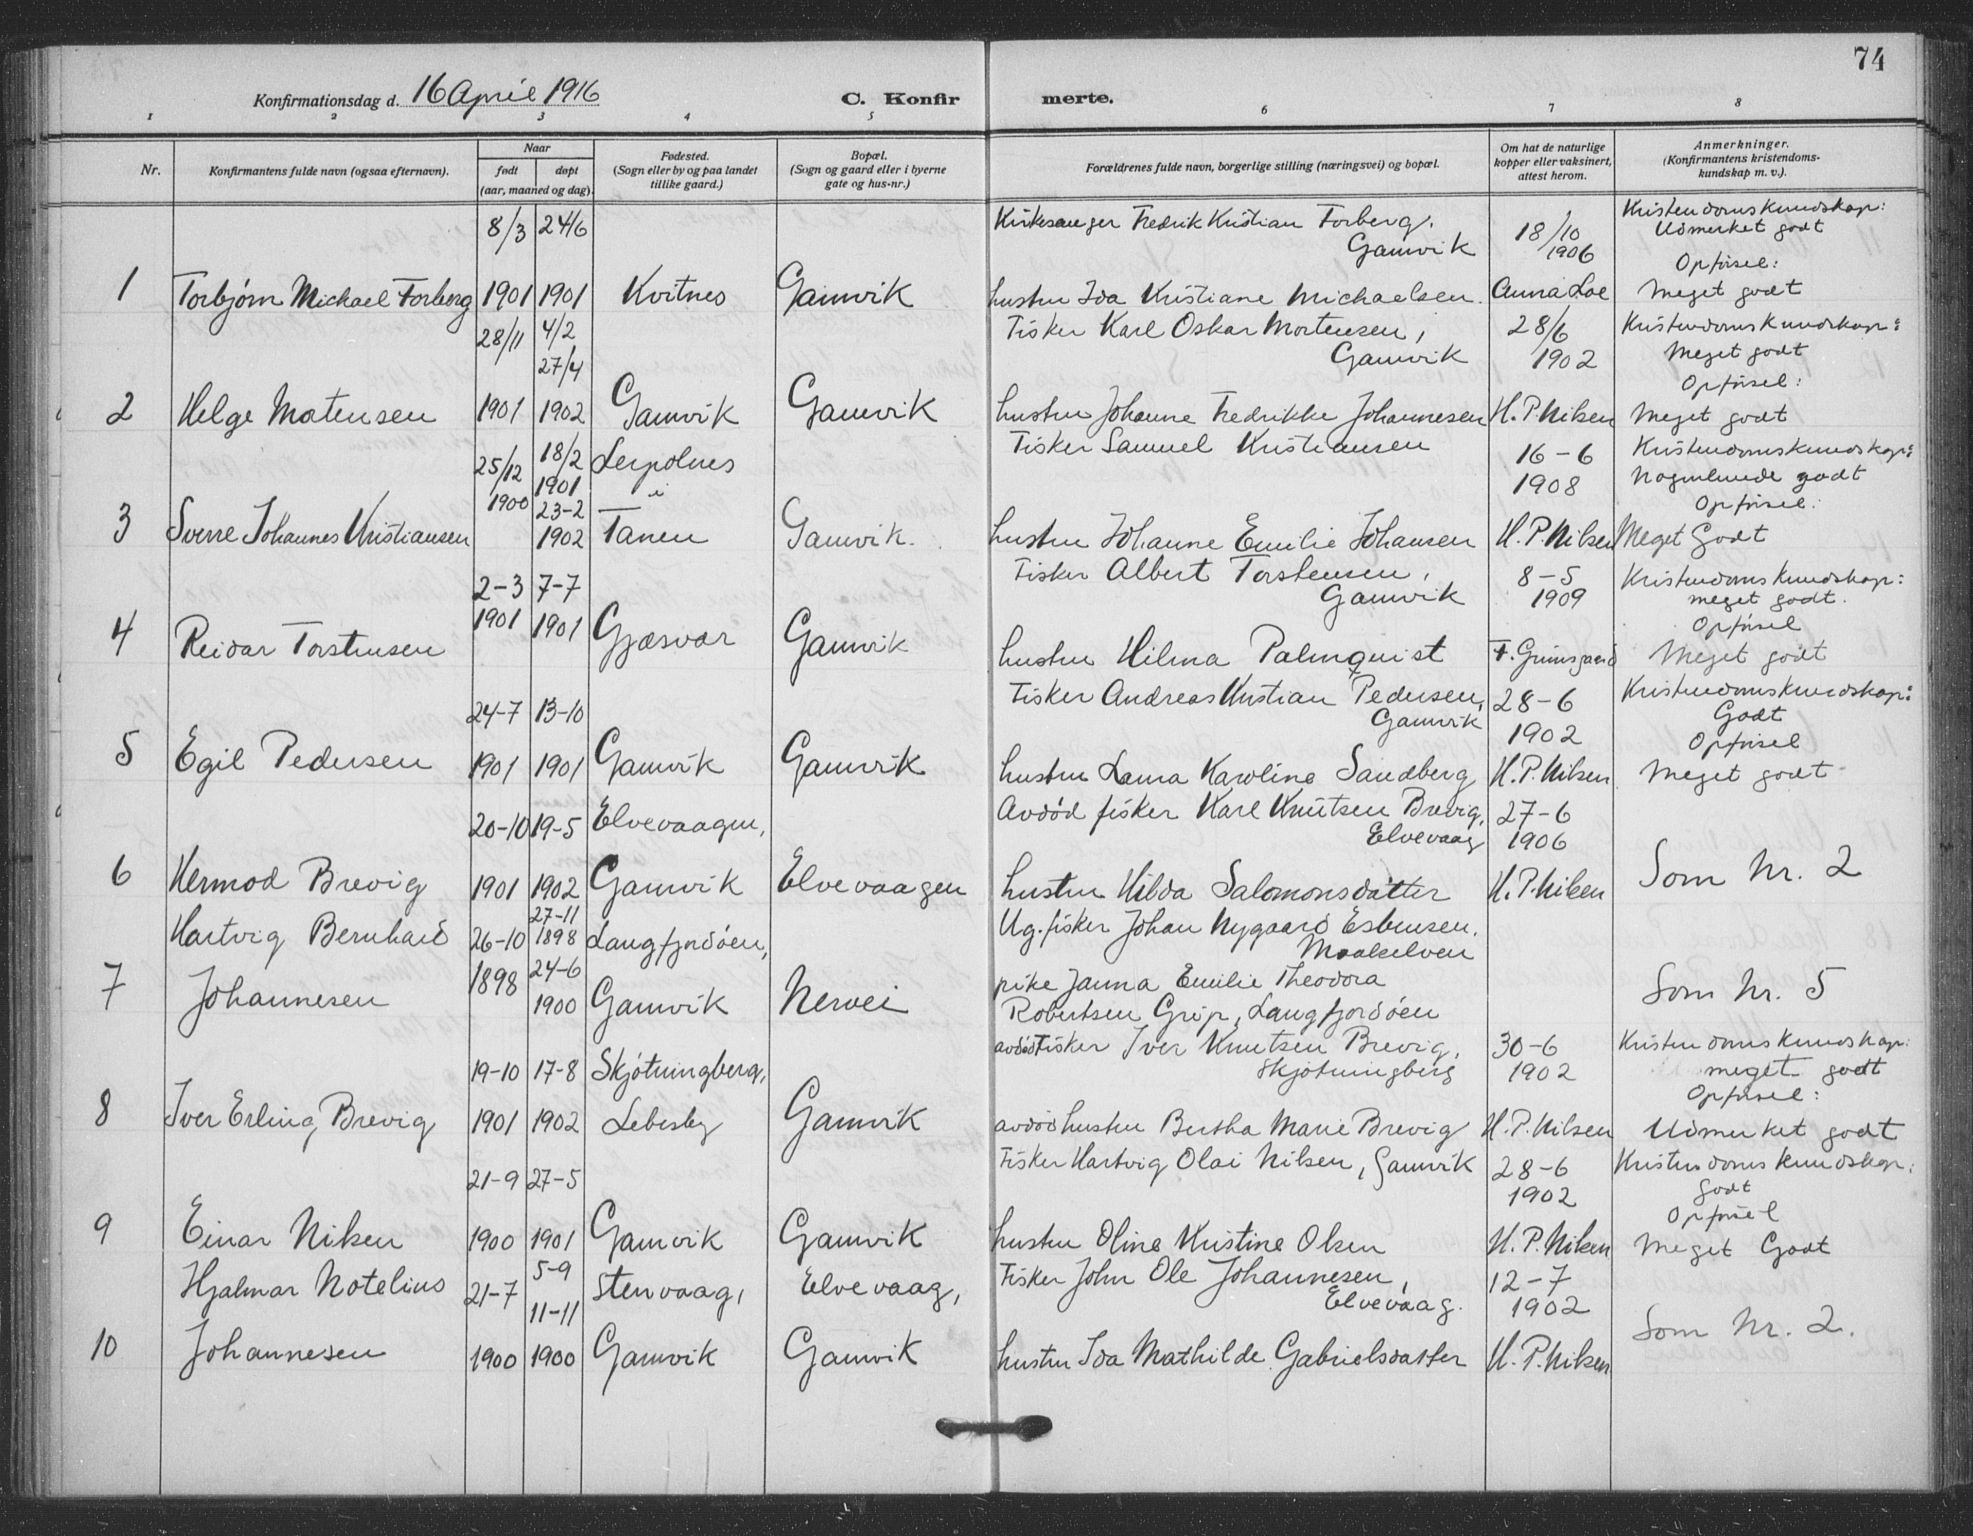 74
Konfirmationsdag d. 16 April 1916
C. Konfir merte.
1 2 3 4 5 6 7 8
Nr.
Konfirmantens fulde navn (ogsaa efternavn).
Naar
født døpt
(aar, maaned og dag).
Fødested.
(Sogn eller by og paa landet
tillike gaard.)
Bopæl.
(Sogn og gaard eller i byerne
gate og hus-nr.)
Forældrenes fulde navn, borgerlige stilling (næringsvei) og bopæl.
Om hat de naturlige
kopper eller vaksinert,
attest herom.
Anmerkninger.
(Konfirmantens kristendoms-
kundskap m. v.).
1
Torbjørn Michael Forberg
8/3
1901
24/6
1901
Kvitnes
Gamvik
Kirkesanger Fredrik Kristian Forberg.
Gamvik
hustru Ida Kristiane Michaelsen.
18/10
1906
Anna Loe
Kristendomskundskap:
Udmerket godt
Opførsel:
Meget godt
2
Helge Mortensen
28/11
1901
4/2
27/4
1902
Gamvik
Gamvik
Fisker Karl Oskar Mortensen,
Gamvik
hustru Johanne Fredrikke Johannesen
28/6
1902
H. P. Nilsen
Kristendomskundskap:
Meget godt
Opførsel:
Meget godt
3
Sverre Johannes Kristiansen
25/12
1900
18/2
1901
23-2
1902
Leipolnes
i
Tanen
Gamvik.
Fisker Samuel Kristiansen
hustru Johanne Emilie Johansen
16-6
1908
H. P. Nilsen
Kristendomskundskap:
Nogenlunde godt
Opførsel:
Meget Godt
4
Reidar Torstensen
2-3
1901
7-7
1901
Gjæsvær
Gamvik
Fisker Albert Torstensen,
Gamvik
hustru Hilma Palmquist
8-5
1909
F. Grimsgaard
Kristendomskundskap:
meget godt.
Opførsel
Meget godt
5
Egil Pedersen
24-7
1901
13-10
1901
Gamvik
Gamvik
Fisker Andreas Kristian Pedersen,
Gamvik
hustru Laura Karoline Sandberg
28-6
1902
H. P. Nilsen
Kristendomskundskap:
Godt
Opførsel
Meget godt
6
Hermod Brevig
20-10
1901
19-5
1902
Elvevaagen,
Gamvik
Elvevaagen
Avdød fisker Karl Knutsen Brevig,
Elvevaag
hustru Hilda Salomonsdatter
27-6
1906
H. P. Nilsen
Som Nr. 2
7
Hartvig Bernhard
Johannesen
26-10
1898
27-11
1898
24-6
1900
Langfjordøen,
Gamvik
Nervei
Ug. fisker Johan Nygaard Esbensen.
Maalselven
pike Janna Emilie Theodora
Robertsen Grip, Langfjordøen
Som Nr. 5
8
Iver Erling Brevig
19-10
1901
17-8
1902
Skjøtningberg,
Lebesby
Gamvik
avdød Fisker Iver Knutsen Brevig,
Skjøtningberg
avdød hustru Bertha Marie Brevig
30-6
1902
H. P. Nilsen
Kristendomskundskap:
meget godt
Opførsel:
Udmerket godt
9
Einar Nilsen
21-9
1900
27-5
1901
Gamvik
Gamvik
Fisker Hartvig Olai Nilsen, Gamvik
hustru Oline Kristine Olsen
28-6
1902
H. P. Nilsen
Kristendomskundskap:
godt
Opførsel
Meget Godt
10
Hjalmar Notelius
Johannesen
21-7
1900
5-9
11-11
1900
Stenvaag,
Gamvik
Elvevaag,
Gamvik
Fisker John Ole Johannesen,
Elvevaag.
hustru Ida Mathilde Gabrielsdatter
12-7
1902
H. P. Nilsen
Som Nr. 2.